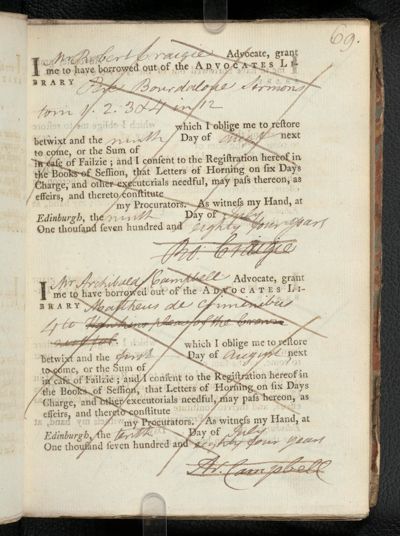 69.
I Mr Robert Craigie Advocate, grant
me to have borrowed out of the ADVOCATES LI-
BRARY Bourdaloue Sermons
tom 1. 2. 3 & 4 in 12
which I oblige me to restore
betwixt and the ninth Day of august next
to come, or the Sum of
in case of Failzie; and I consent to the Registration hereof in
the Books of Session, that Letters of Horning on six Days
Charge, and other executorials needful, may pass thereon, as
effeirs, and thereto constitute
my Procurators. As witness my Hand, at
Edinburgh, the ninth Day of July
One thousand seven hundred and eighty four years
Ro. Craigie
I Mr Archibald Campbell Advocate, grant
me to have borrowed out of the ADVOCATES LI-
BRARY Mattheus de Criminibus
4to Pleas of the Crown
which I oblige me to restore
betwixt and the first Day of August next
to come, or the Sum of
in case of Failzie; and I consent to the Registration hereof in
the Books of Session, that Letters of Horning on six Days
Charge, and other executorials needful, may pass hereon, as
effeirs, and thereto constitute
my Procurators. As witness my Hand, at
Edinburgh, the tenth Day of July
One thousand seven hundred and eighty four years
Ar. Campbell